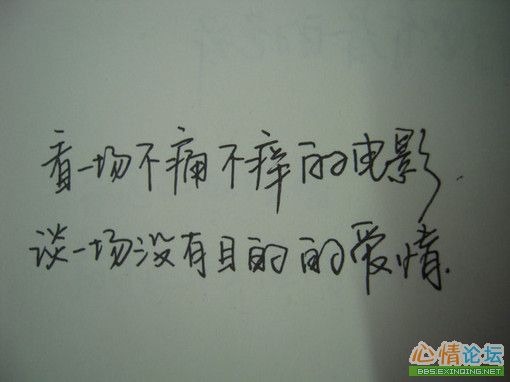 看一场不痛不痒的电影.
谈一场没有目的的爱情.
心情论坛
BBS.EXINQING.NET